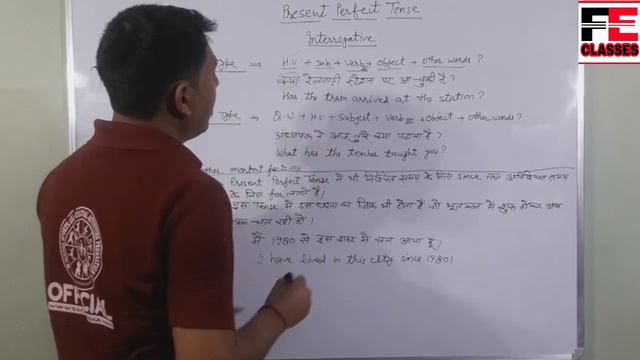 Present Perfect Tense
Interrogative
Type ⇒ HV + sub + verb + object + other words?
क्या रेलगाड़ी स्टेशन पर आ चुकी है?
Has the train arrived at the station?
Type ⇒ Q.W + H.V + Subject + Verb + object + other words?
अध्यापक ने आज तुम्हें क्या पढ़ाया है?
What has the teacher taught you?
Present Perfect Tense में भी निश्चित समय के लिए since तथा अनिश्चित समय
के लिए for लगाते हैं।
इस Tense में उस घटना का जिक्र भी होता है जो भूतकाल में शुरू होकर अब
चल रही हो।
मैं 1980 से इस शहर में
I have lived in this city since 1980.
FE
CLASSES
OFFICIAL